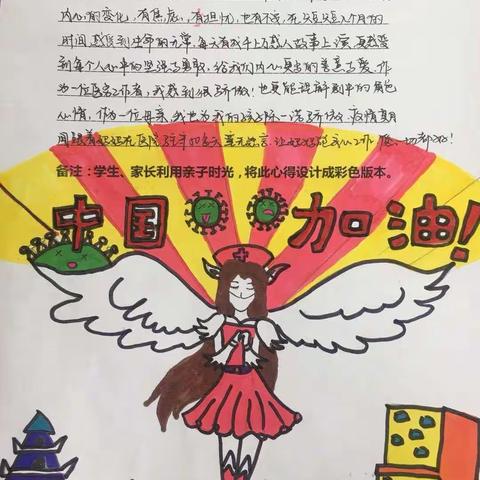 内心的变化，有焦虑，有担忧，也有不安，在短短几个月的
时间，感受到生命的无常，每天有成千上万感人故事上演，更感受
到每个人心中的坚强与勇敢，给我们内心
善意与爱，作
为一位医务工作者，我感到很骄傲！也更能理解剧中的角色
心情，作为一位母亲，我也为我的孩子
骄傲，疫情期
间跟着妈妈在医院
天毫无怨言，让妈妈
工作
一切都好！
备注：学生、家长利用亲子时光，将此心得设计成彩色版本。
中国加油！